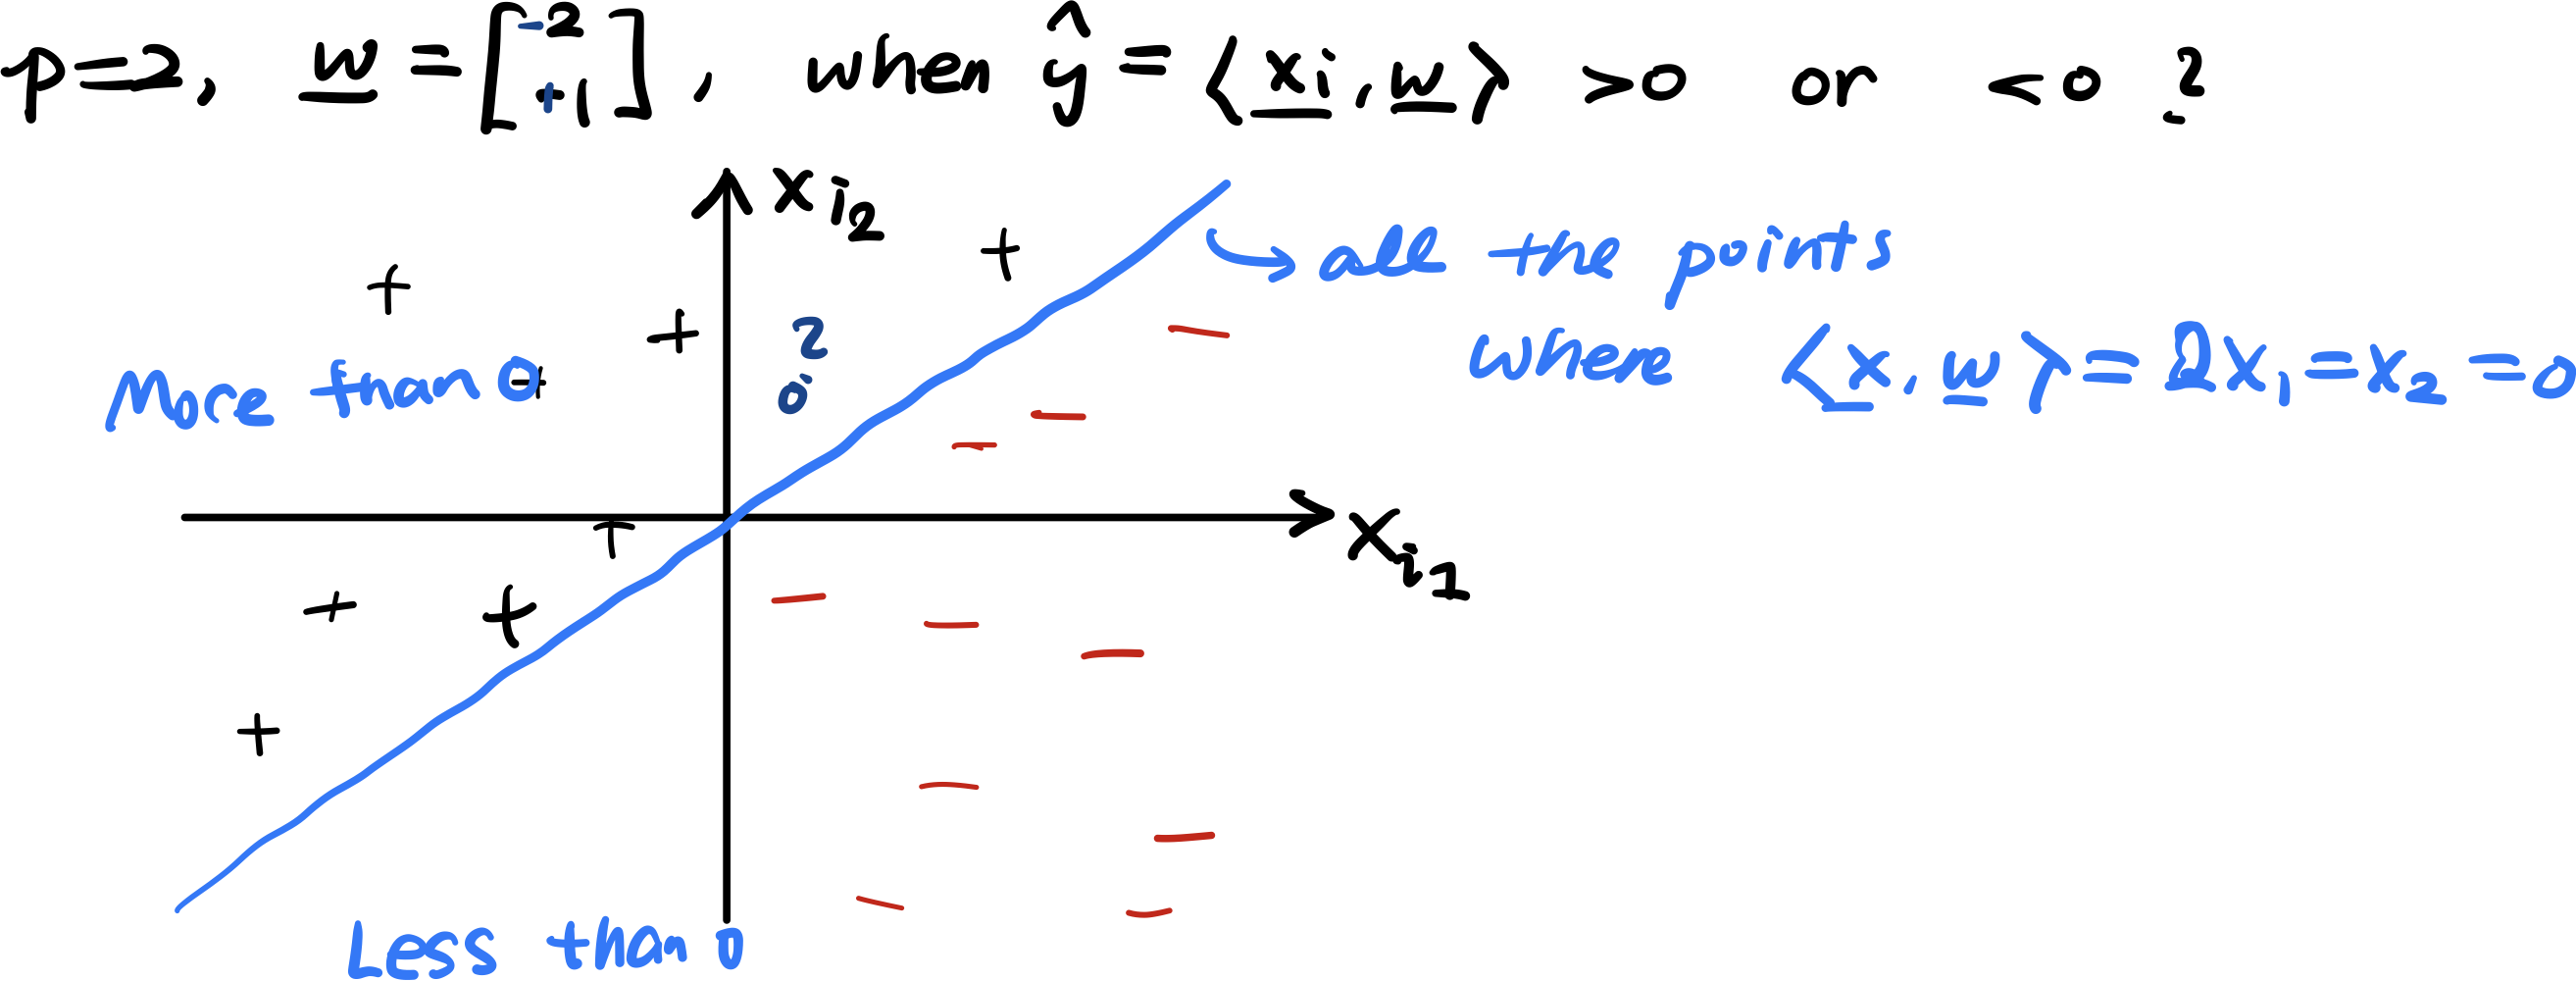 p=2, w = [-2 +1], when ŷ = ⟨xi, w⟩ >0 or <0 ?
xi2
all the points
where ⟨x, w⟩ = 2x1 = x2 = 0
More than 0
xi1
Less than 0